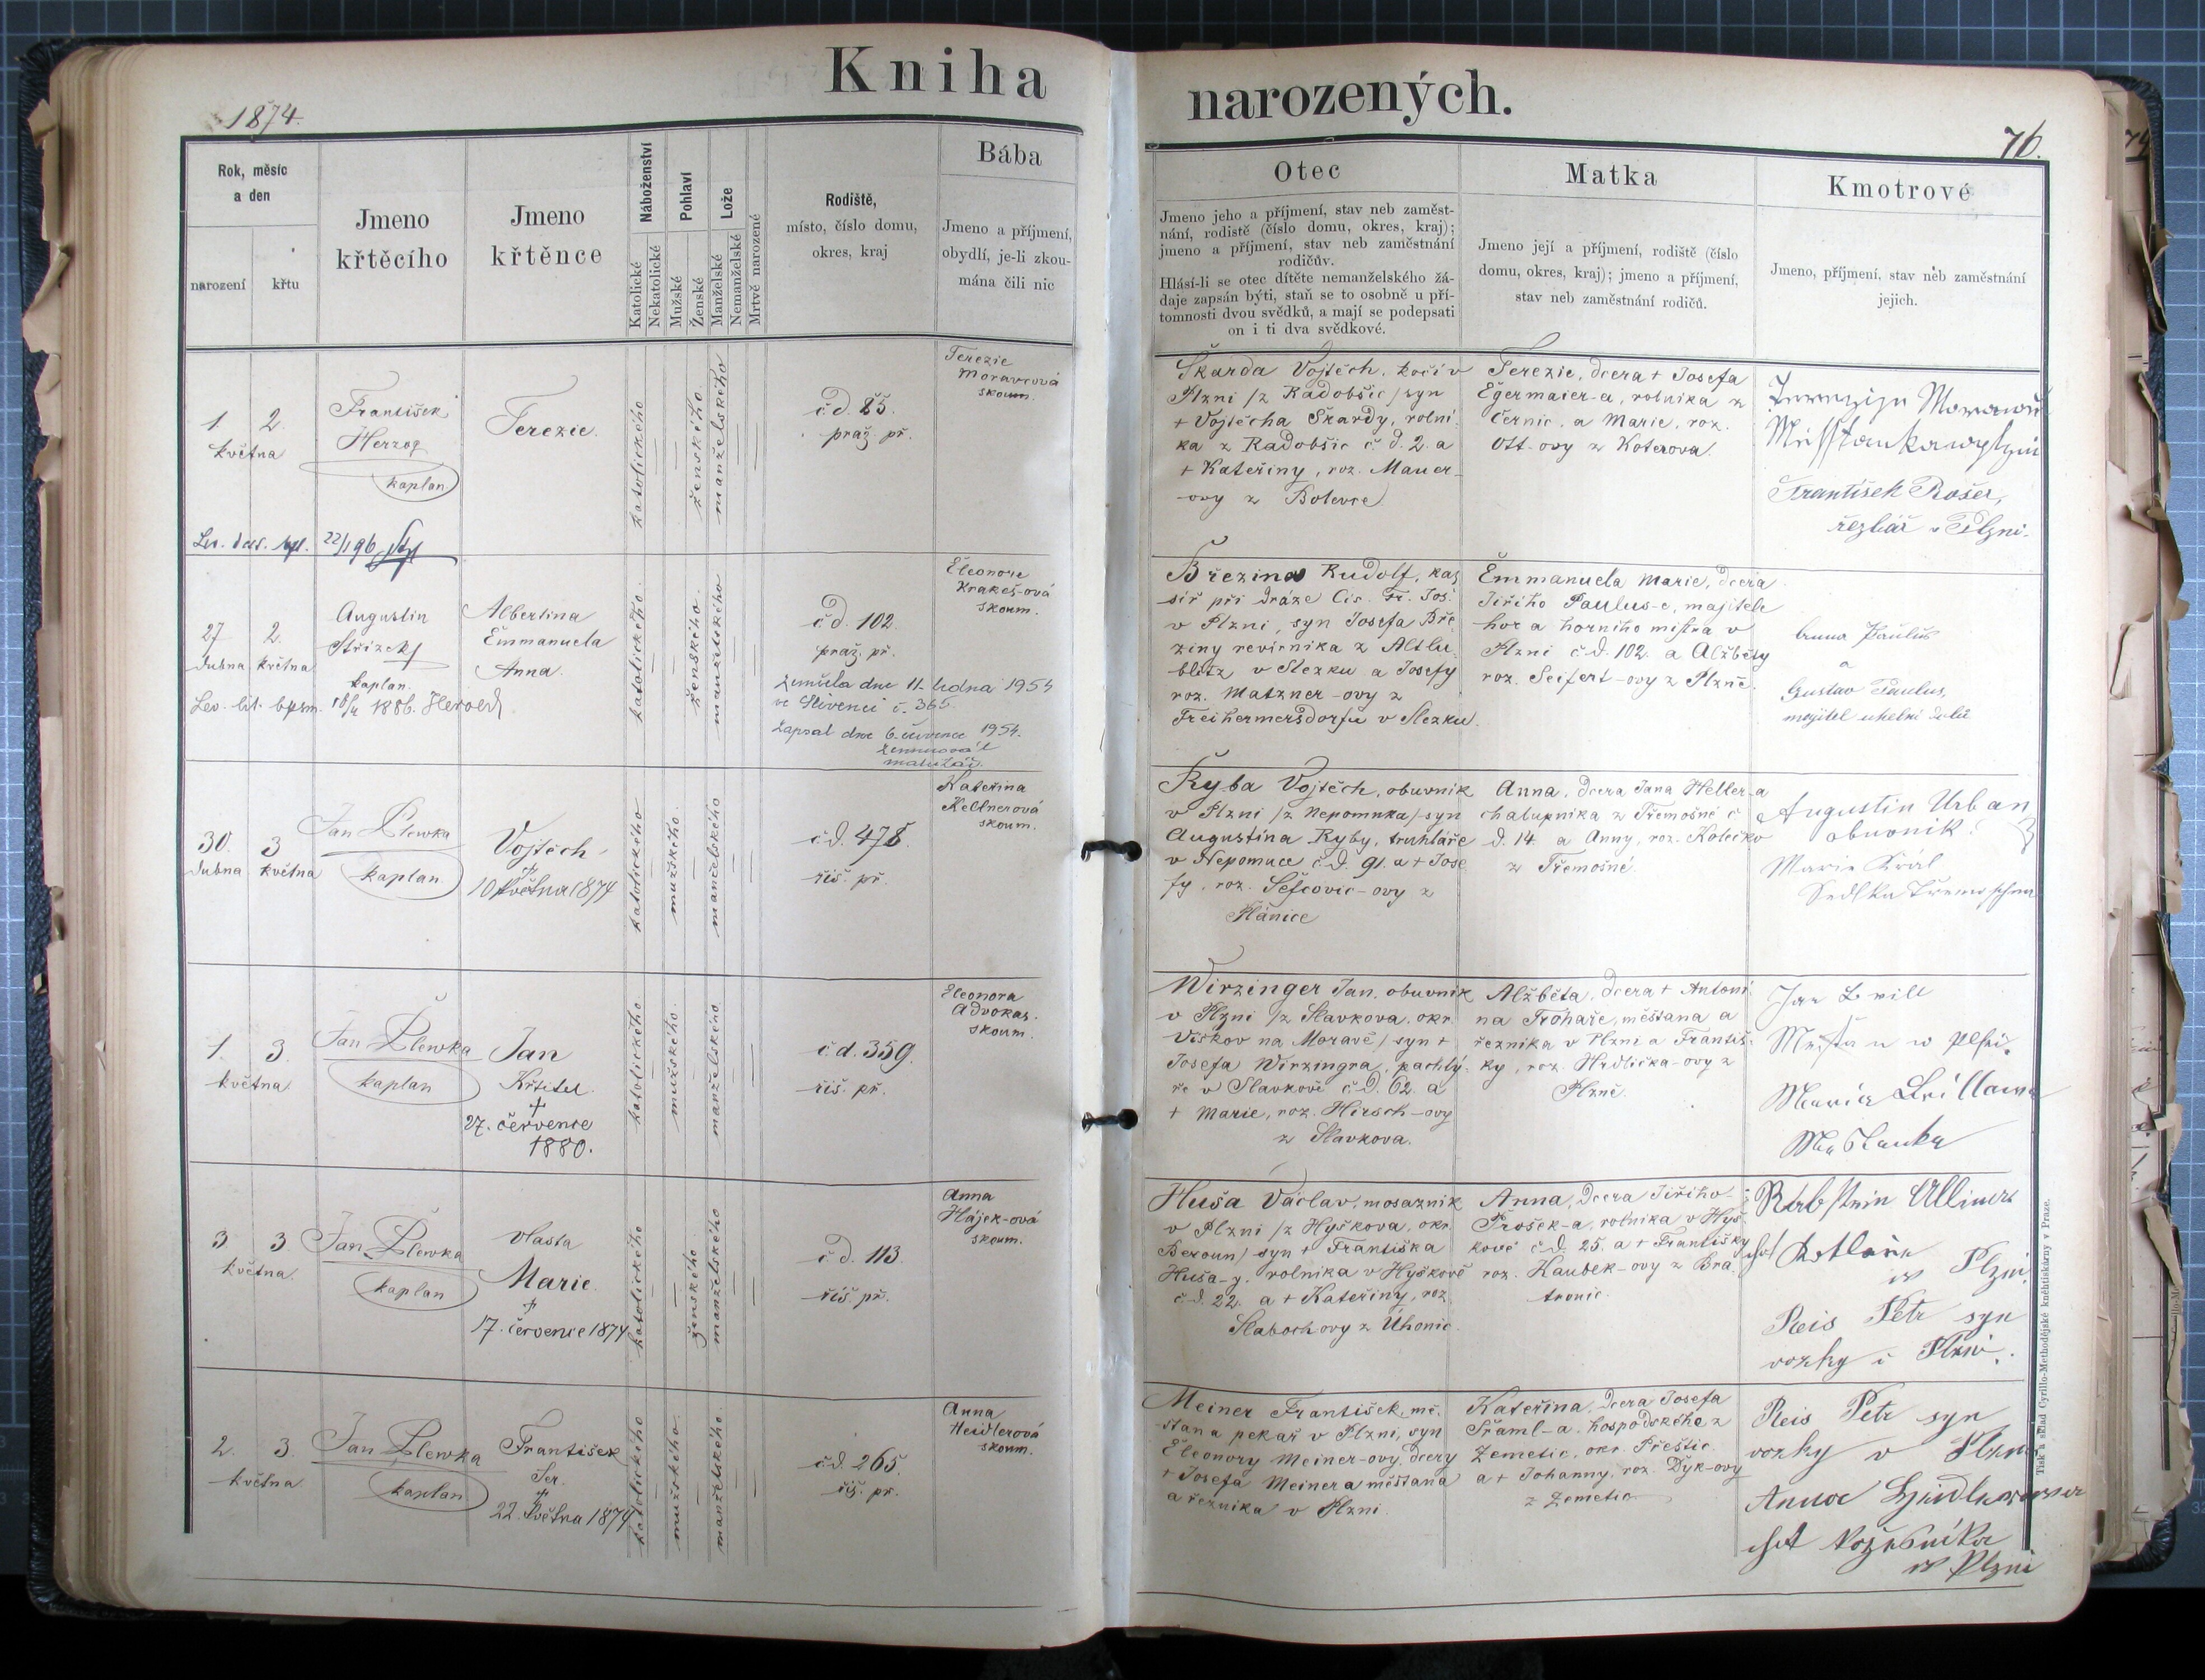 Kniha
narozených.
1874.
76.
Rok, měsíc
a den
narození
křtu
Jmeno
křtěcího
Jmeno
křtěnce
Náboženství
Katolické
Nekatolické
Pohlaví
Mužské
Ženské
Lože
Manželské
Nemanželské
Mrtvě narozené
Rodiště,
místo, číslo domu,
okres, kraj
Bába
Jmeno a příjmení,
obydlí, je-li zkou-
mána čili nic
Otec
Jmeno jeho a příjmení, stav neb zaměst-
nání, rodiště (číslo domu, okres, kraj);
jmeno a příjmení, stav neb zaměstnání
rodičův.
Hlásí-li se otec dítěte nemanželského žá-
daje zapsán býti, staň se to osobně u pří-
tomnosti dvou svědků, a mají se podepsati
on i ti dva svědkové.
Matka
Jmeno její a příjmení, rodiště (číslo
domu, okres, kraj); jmeno a příjmení,
stav neb zaměstnání rodičů.
Kmotrové
Jmeno, příjmení, stav neb zaměstnání
jejich.
1. 2.
května
František
Herzog
kaplan
Terezie.
katolického
ženského
manželského
č.d. 25.
praž. př.
Terezie
Moravcová
skoum.
Škarda Vojtěch, kočí v
Plzni /z Radobšic/ syn
+ Vojtěcha Škardy, rolní-
ka z Radobšic č.d. 2. a
+ Kateřiny, roz. Mauer-
ovy z Bolevce
Terezie, dcera + Josefa
Egermaier-a, rolníka z
Černic, a Marie, roz.
Ott-ovy z Koterova.
František Rošer,
řezbář v Plzni.
22/1 96
27 2.
dubna května
Augustin
Střizek
kaplan.
Albertina
Emmanuela
Anna.
katolického
ženského
manželského
č.d. 102.
praž. př.
Eleonore
Krakeš-ová
skoum.
zemřela dne 11. ledna 1954
ve Slivenci č. 365.
Zapsal dne 6. července 1954.
Březina Rudolf, kas
sír při dráze Cís. Fr. Jos.
v Plzni, syn Josefa Bře-
ziny revírníka z Altlu-
blitz v Slezku a Josefy
roz. Matzner-ovy z
Freihermersdorfu v Slezku.
Emmanuela Marie, dcera
Jiřího Paulus-e, majitele
hor a horního mistra v
Plzni č.d. 102. a Alžběty
roz. Seifert-ovy z Plzně.
Anna Paulus
a
Gustav Paulus,
majitel uhelní dolů
30. 3
dubna května
Jan Šlewka
kaplan
Vojtěch
10 května 1874
katolického
mužského
manželského
č.d. 478.
říš. př.
Kateřina
Kellnerová
skoum.
Ryba Vojtěch, obuvník
v Plzni /z Nepomuka/ syn
Augustina Ryby, truhláře
v Nepomuce č.d. 91. a + Jose
fy, roz. Šefcovic-ovy z
Plánice
Anna, dcera Jana Heller-a
chalupníka z Třemošné č
d. 14. a Anny, roz. Kolečko
z Třemošné.
Augustin Urban
obuvník.
Marie Král
1. 3.
května
Jan Šlewka
kaplan
Jan
Křtitel
+
27. července
1880.
katolického
mužského
manželského
č.d. 359.
říš. př.
Eleonora
Advokas.
skoum.
Wirzinger Jan, obuvník
v Plzni /z Slavkova, okr.
Viškov na Moravě/ syn +
Josefa Wirzingra, pachtý-
ře v Slavkově č.d. 62. a
+ Marie, roz. Hirsch-ovy
z Slavkova.
Alžběta, dcera + Antoni-
na Trohaře, měštana a
řezníka v Plzni a Františ-
ky, roz. Hrdlička-ovy z
Plzně.
3 3
května
Jan Šlewka
kaplan
Vlasta
Marie
+
17. července 1874
katolického
ženského
manželského
č.d. 113
říš. př.
Anna
Hájek-ová
skoum.
Huša Václav, mosazník
v Plzni /z Hyškova, okr.
Beroun/ syn + Františka
Huša-y, rolníka v Hyškově
č.d. 22. a + Kateřiny, roz.
Slaboch ovy z Úhonic.
Anna, dcera Jiřího
Prošek-a, rolníka v Hyš-
kově č.d. 25. a + Františky
roz. Kaubek-ovy z Bra-
tronic.
Reis Petr syn
vozky v Plzni.
2. 3.
května
Jan Šlewka
kaplan
František
Ser.
+
22. května 1874
katolického
mužského
manželského
č.d. 265.
říš. př.
Anna
Heidlerová
skoum.
Meiner František, mě-
štan a pekař v Plzni, syn
Eleonory Meiner-ovy, dcery
+ Josefa Meinera měštana
a řezníka v Plzni.
Kateřina, dcera Josefa
Šraml-a, hospodského z
Zemetic, okr. Přeštic
a + Johanny, roz. Dyk-ovy
z Zemetic
Reis Petr syn
vozky v Plzni
Tisk a sklad Cyrillo-Methodějské kněhtiskárny v Praze.